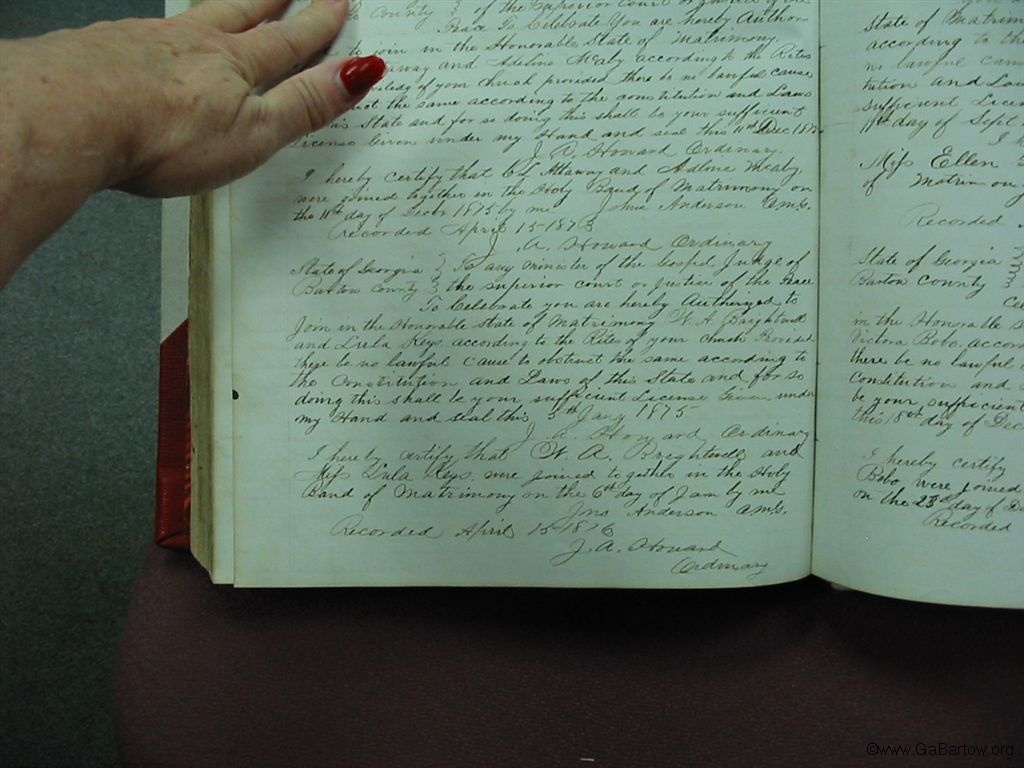 County } of the Superior Court or Justice of the
Peace To Celebrate You are hereby Author
to join in the Honorable State of Matrimony.
away and Adeline McCaby according to the Rites
of your church provided there be no lawful cause
the same according to the constitution and Laws
this State and for so doing this shall be your sufficient
License Given under my Hand and seal this 11th Dec 187
J. A. Howard Ordinary.
I hereby certify that C L Attaway and
were joined together in the Holy Band of Matrimony on
the 11th day of 1875 by me John Anderson A.M.G.
Recorded April 15 1876
J. A. Howard Ordinary
State of Georgia } To any minister of the Gospel Judge of
Bartow County } the superior court or Justice of the Peace
To Celebrate you are hereby Autherized to
Join in the Honorable State of Matrimony W. A. Brightwell
and Lula Keys according to the Rites of your Church Provided
there be no lawful cause to obstruct the same according to
the Constitution and Laws of this State and for so
doing this shall be your sufficient License Given under
my Hand and seal this 5th Jany 1875
J. A. Howard, Ordinary
I hereby certify that W. A. Brightwell and
Miss Lula Keys were joined together in the Holy
Band of Matrimony on the 6th day of Jan by me
Jno Anderson A.M.G.
Recorded April 15 1876
J. A. Howard
Ordinary
State of Matrim
according to the
no lawful cau
tution and Law
sufficient Licen
11th day of Sept
I h
Miss Ellen
of Matrimony
Recorded
State of Georgia
Bartow County
Ce
in the Honorable S
Victora Bobo accor
there be no lawful
Constitution and
be your sufficient
this 18th day of Dec
I hereby certify
Bobo were joined
on the 23d day of D
Recorded
©www.GaBartow.org